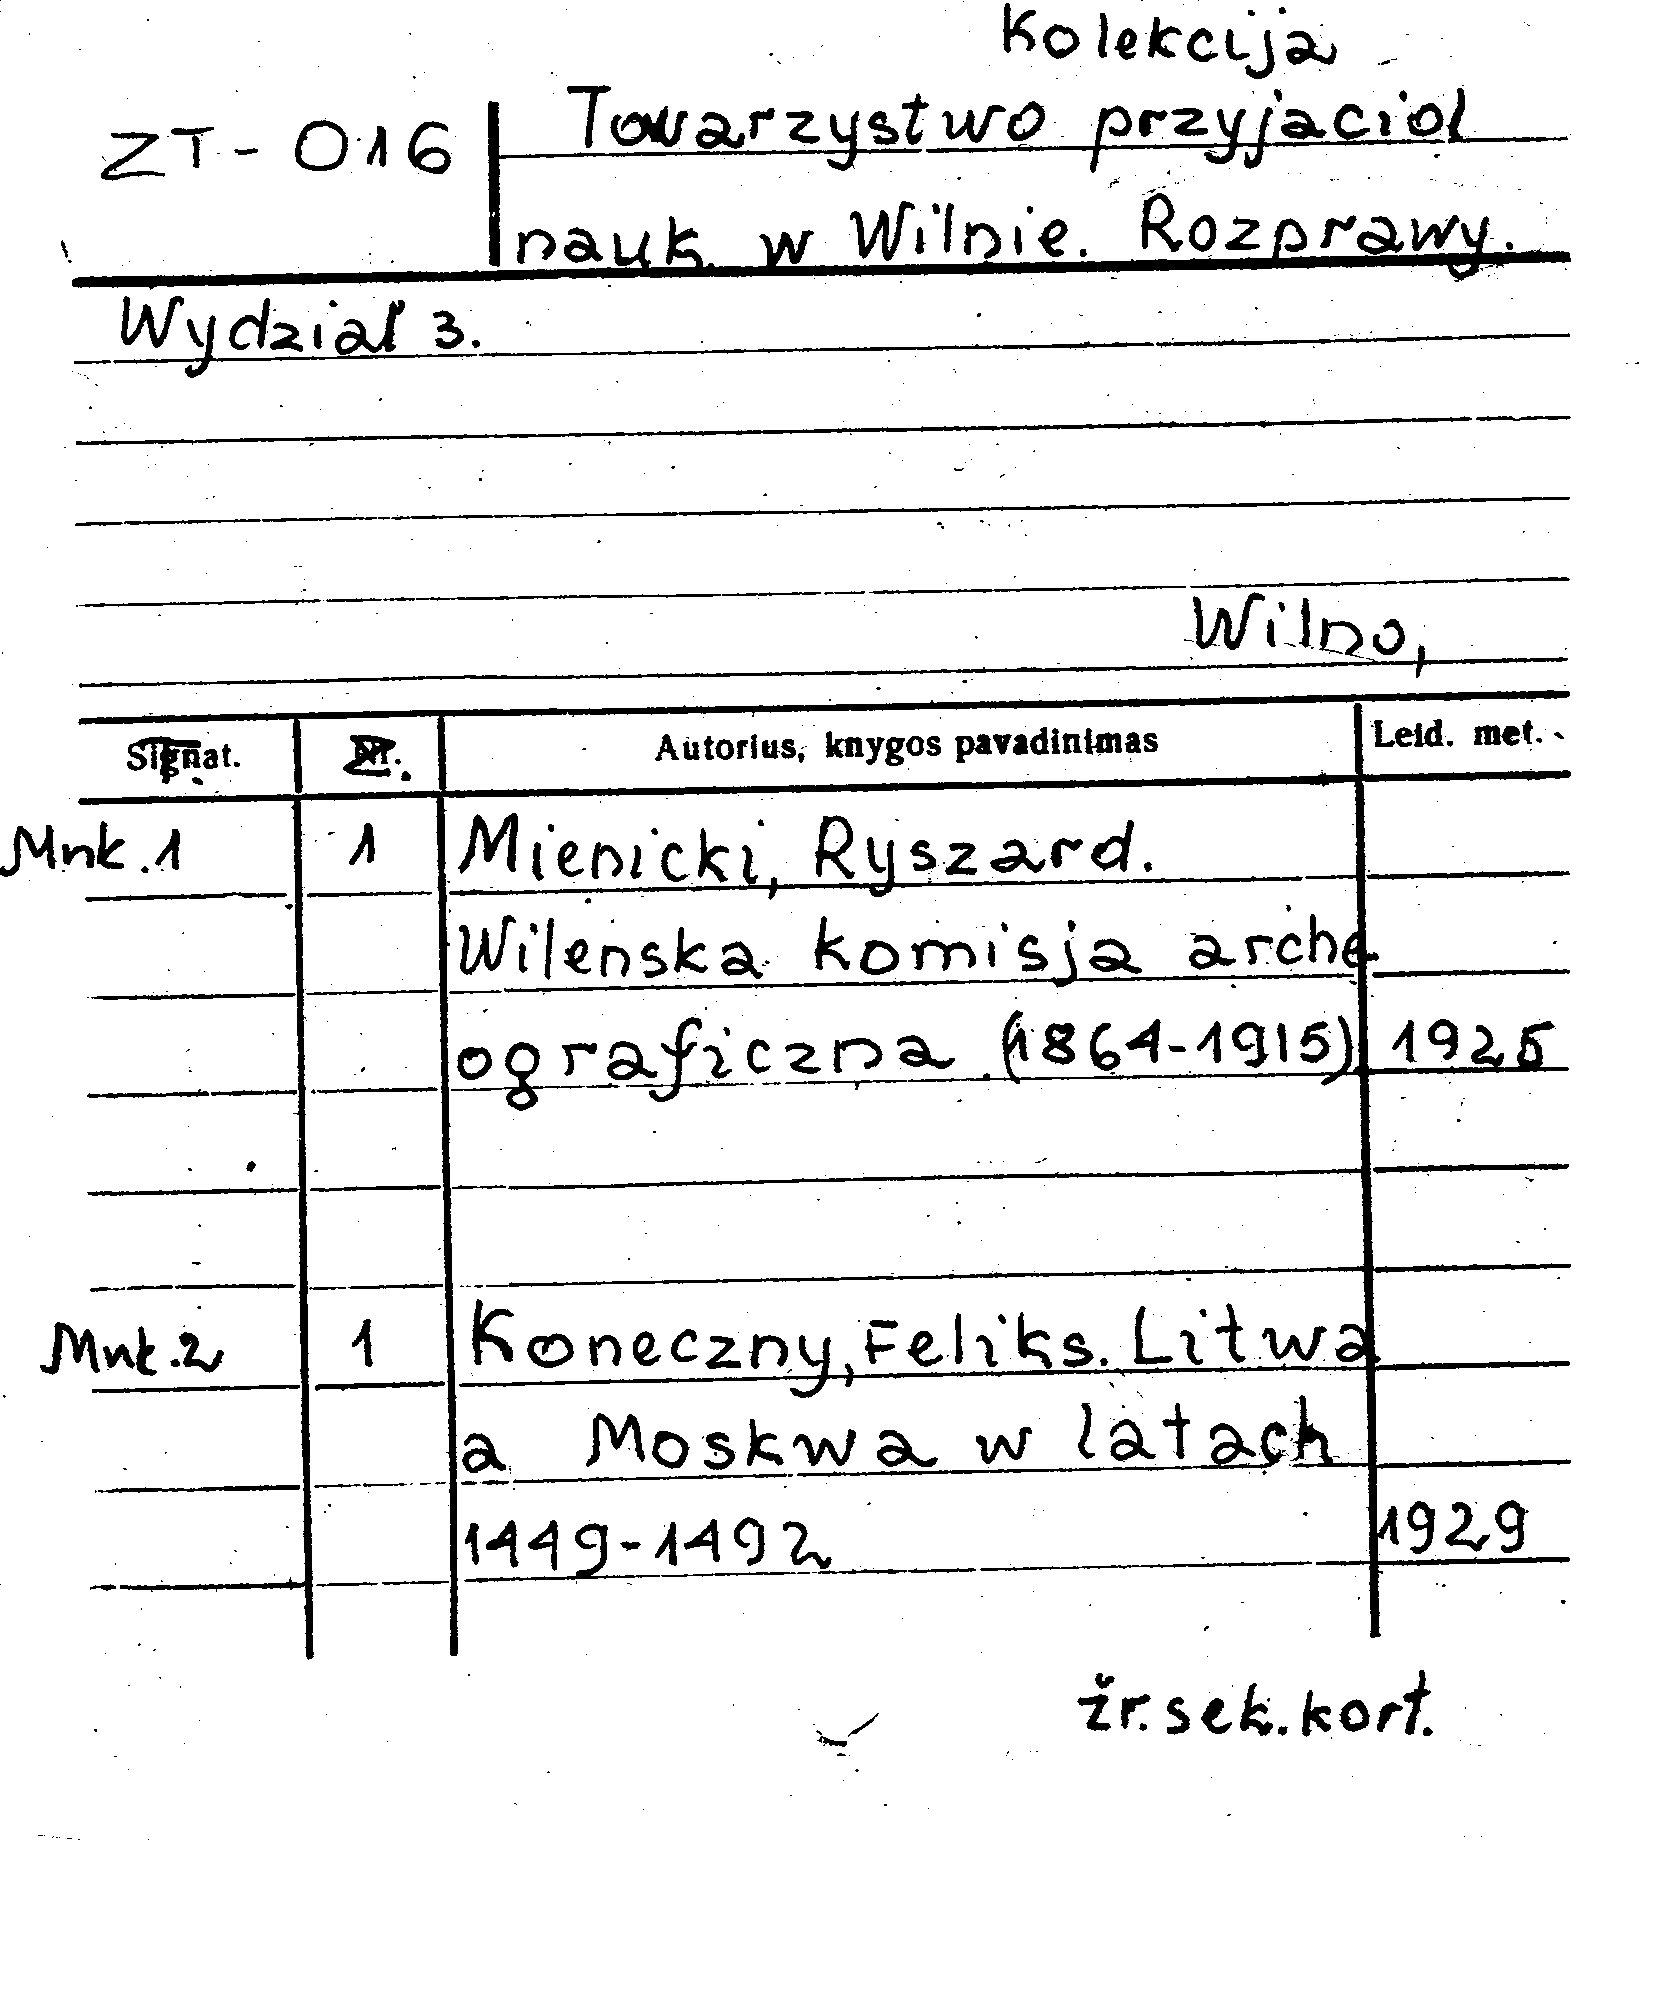 Kolekcija
ZT-016 Towarzystwo przyjaciol
nauk w Wilnie. Rozprawy.
Wydzial 3.
Wilno,
Signat. Nr. Autorius, knygos pavadinimas Leid. met.
Mnk.1 1 Mienicki, Ryszard.
Wilenska komisja arche
ograficzna (1864-1915) 1925
Mnk.2 1 Koneczny, Feliks. Litwa
a Moskwa w latach
1449-1492 1929
žr. sek. kort.